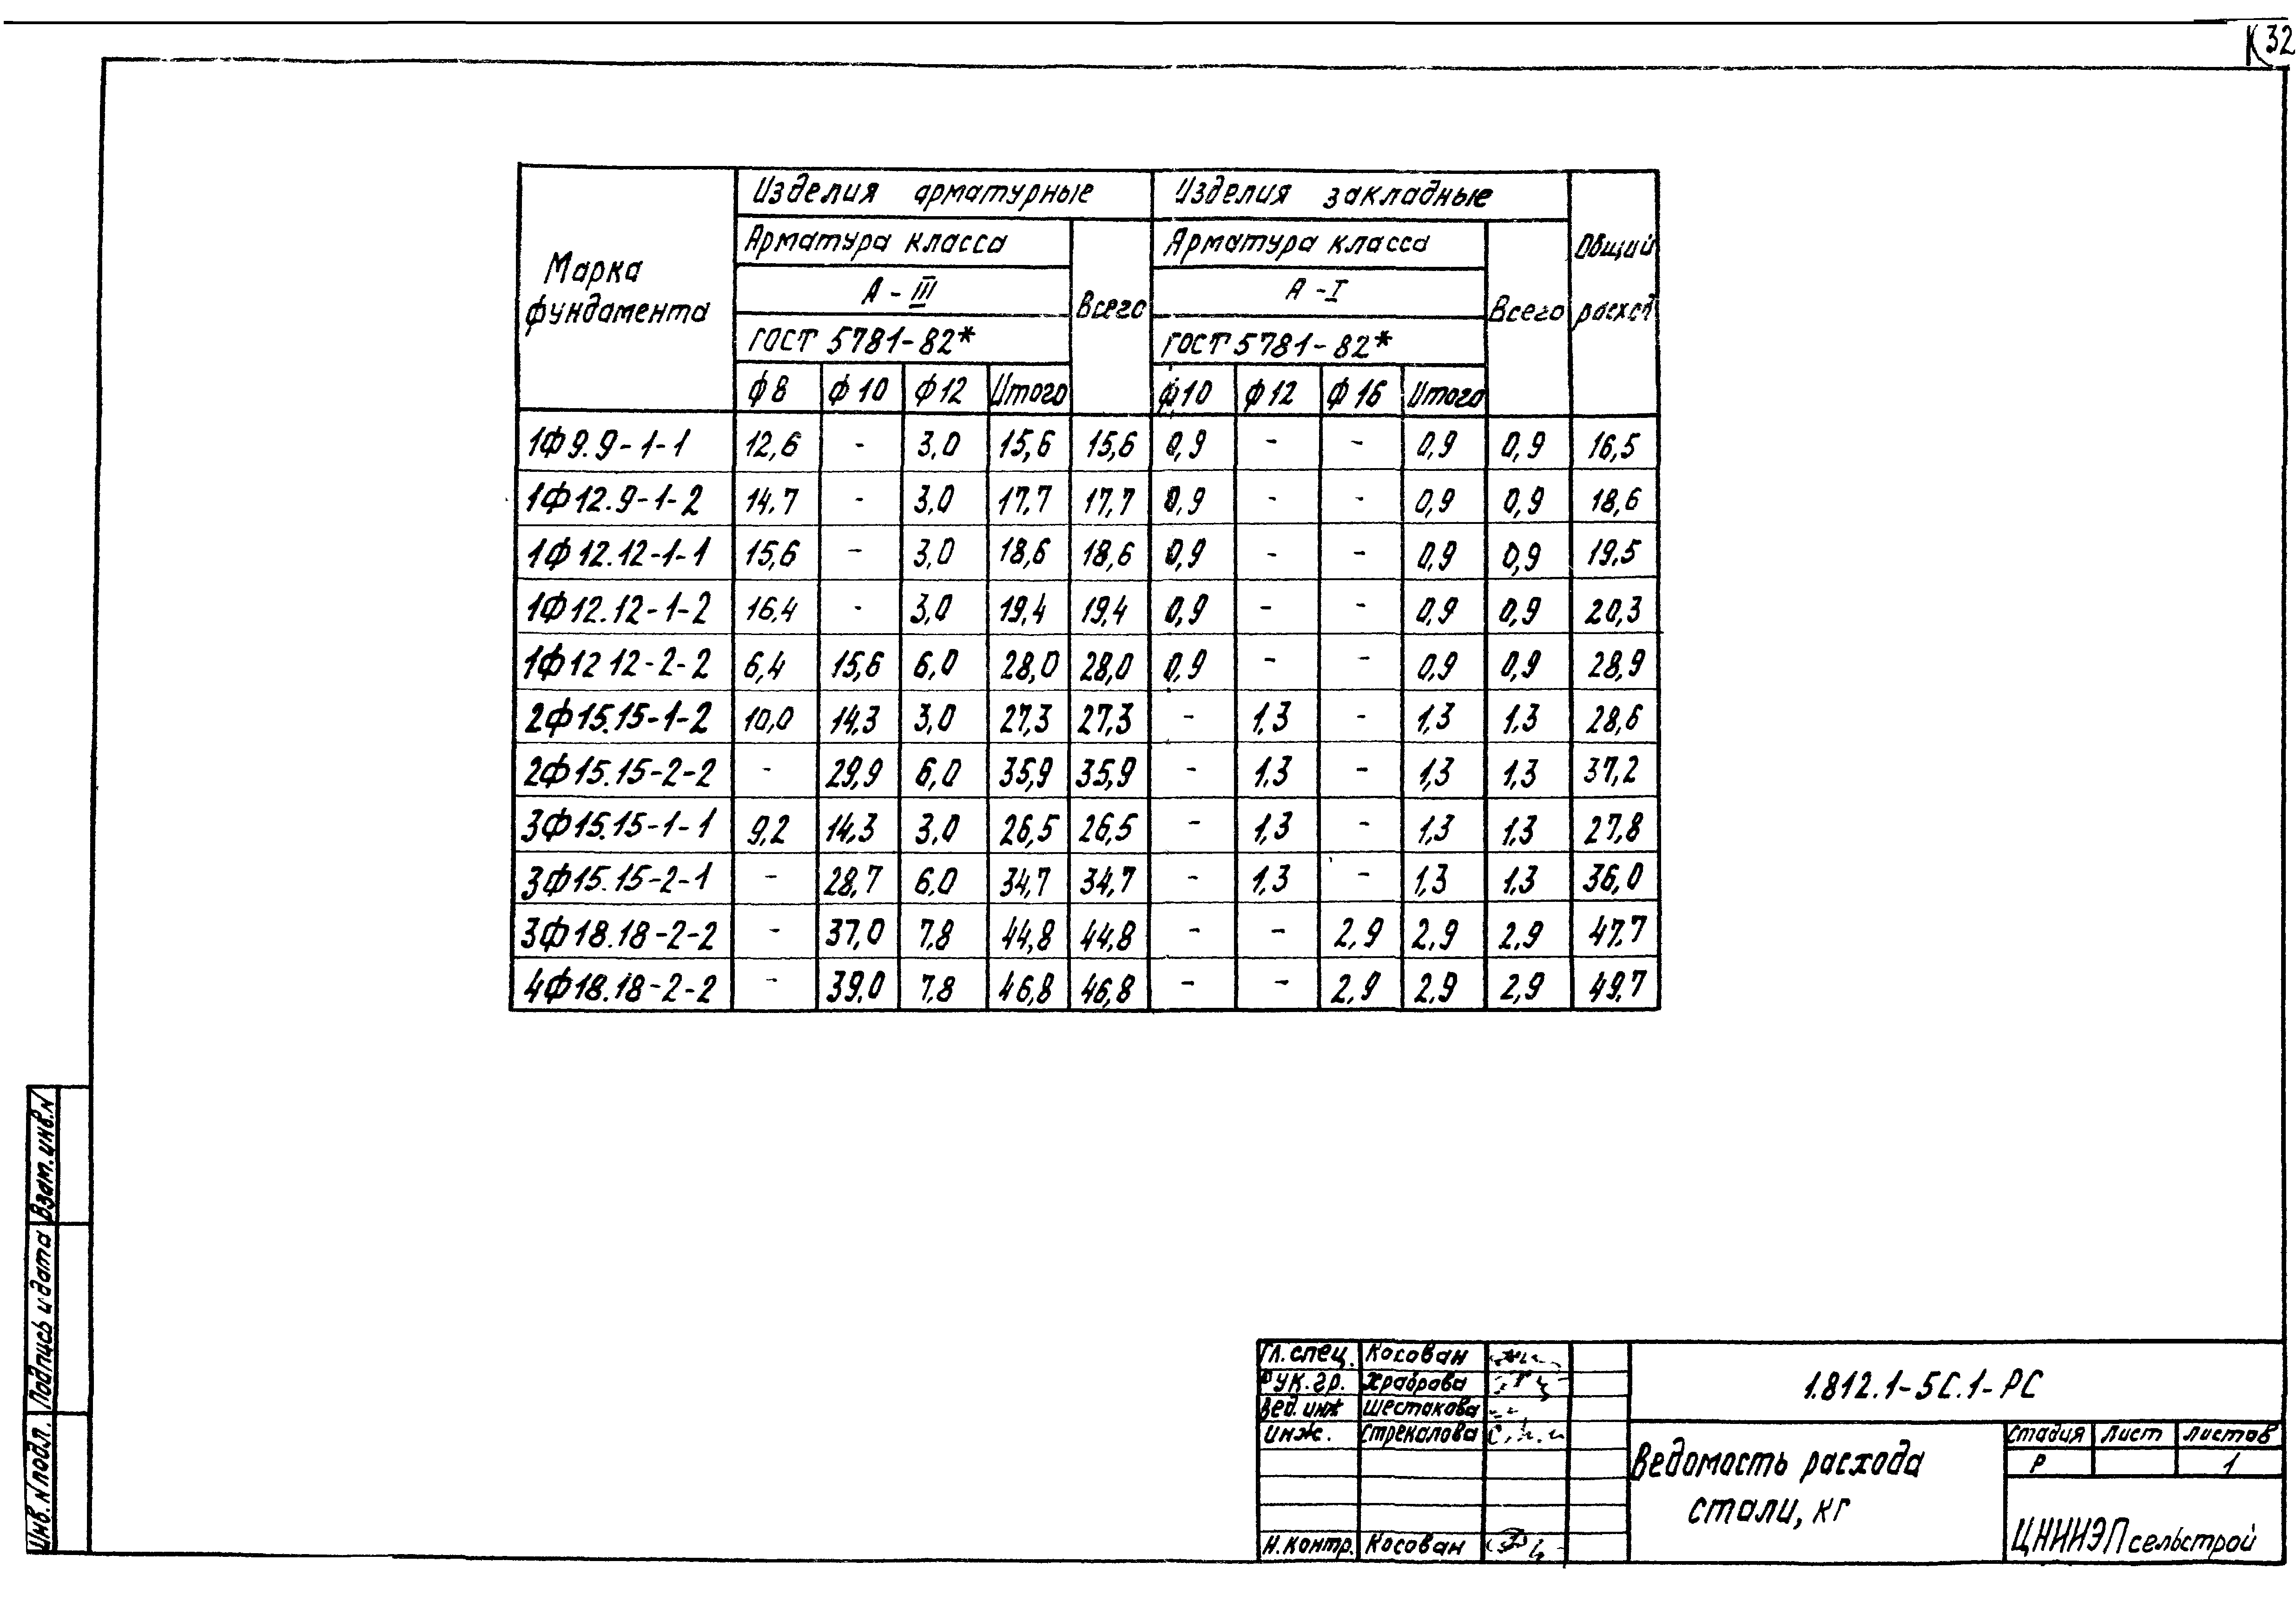 К 32
Марка фундамента | Изделия арматурные | Изделия закладные | Общий расход
Арматура класса | Всего | Арматура класса | Всего
А-III | А-I
ГОСТ 5781-82* | ГОСТ 5781-82*
ф8 | ф10 | ф12 | Итого | ф10 | ф12 | ф16 | Итого
1Ф9.9-1-1 | 12,6 | - | 3,0 | 15,6 | 15,6 | 0,9 | - | - | 0,9 | 0,9 | 16,5
1Ф12.9-1-2 | 14,7 | - | 3,0 | 17,7 | 17,7 | 0,9 | - | - | 0,9 | 0,9 | 18,6
1Ф12.12-1-1 | 15,6 | - | 3,0 | 18,6 | 18,6 | 0,9 | - | - | 0,9 | 0,9 | 19,5
1Ф12.12-1-2 | 16,4 | - | 3,0 | 19,4 | 19,4 | 0,9 | - | - | 0,9 | 0,9 | 20,3
1Ф12 12-2-2 | 6,4 | 15,6 | 6,0 | 28,0 | 28,0 | 0,9 | - | - | 0,9 | 0,9 | 28,9
2Ф15.15-1-2 | 10,0 | 14,3 | 3,0 | 27,3 | 27,3 | - | 1,3 | - | 1,3 | 1,3 | 28,6
2Ф15.15-2-2 | - | 29,9 | 6,0 | 35,9 | 35,9 | - | 1,3 | - | 1,3 | 1,3 | 37,2
3Ф15.15-1-1 | 9,2 | 14,3 | 3,0 | 26,5 | 26,5 | - | 1,3 | - | 1,3 | 1,3 | 27,8
3Ф15.15-2-1 | - | 28,7 | 6,0 | 34,7 | 34,7 | - | 1,3 | - | 1,3 | 1,3 | 36,0
3Ф18.18-2-2 | - | 37,0 | 7,8 | 44,8 | 44,8 | - | - | 2,9 | 2,9 | 2,9 | 47,7
4Ф18.18-2-2 | - | 39,0 | 7,8 | 46,8 | 46,8 | - | - | 2,9 | 2,9 | 2,9 | 49,7
Взам. инв. N
Подпись и дата
Инв. N подл.
Гл. спец. | Косован
Рук. гр. | Храброва
Вед. инж | Шестакова
Инж. | Стрекалова
Н. контр. | Косован
1.812.1-5С.1-РС
Ведомость расхода
стали, кг
Стадия | Лист | Листов
Р | 1
ЦНИИЭПсельстрой